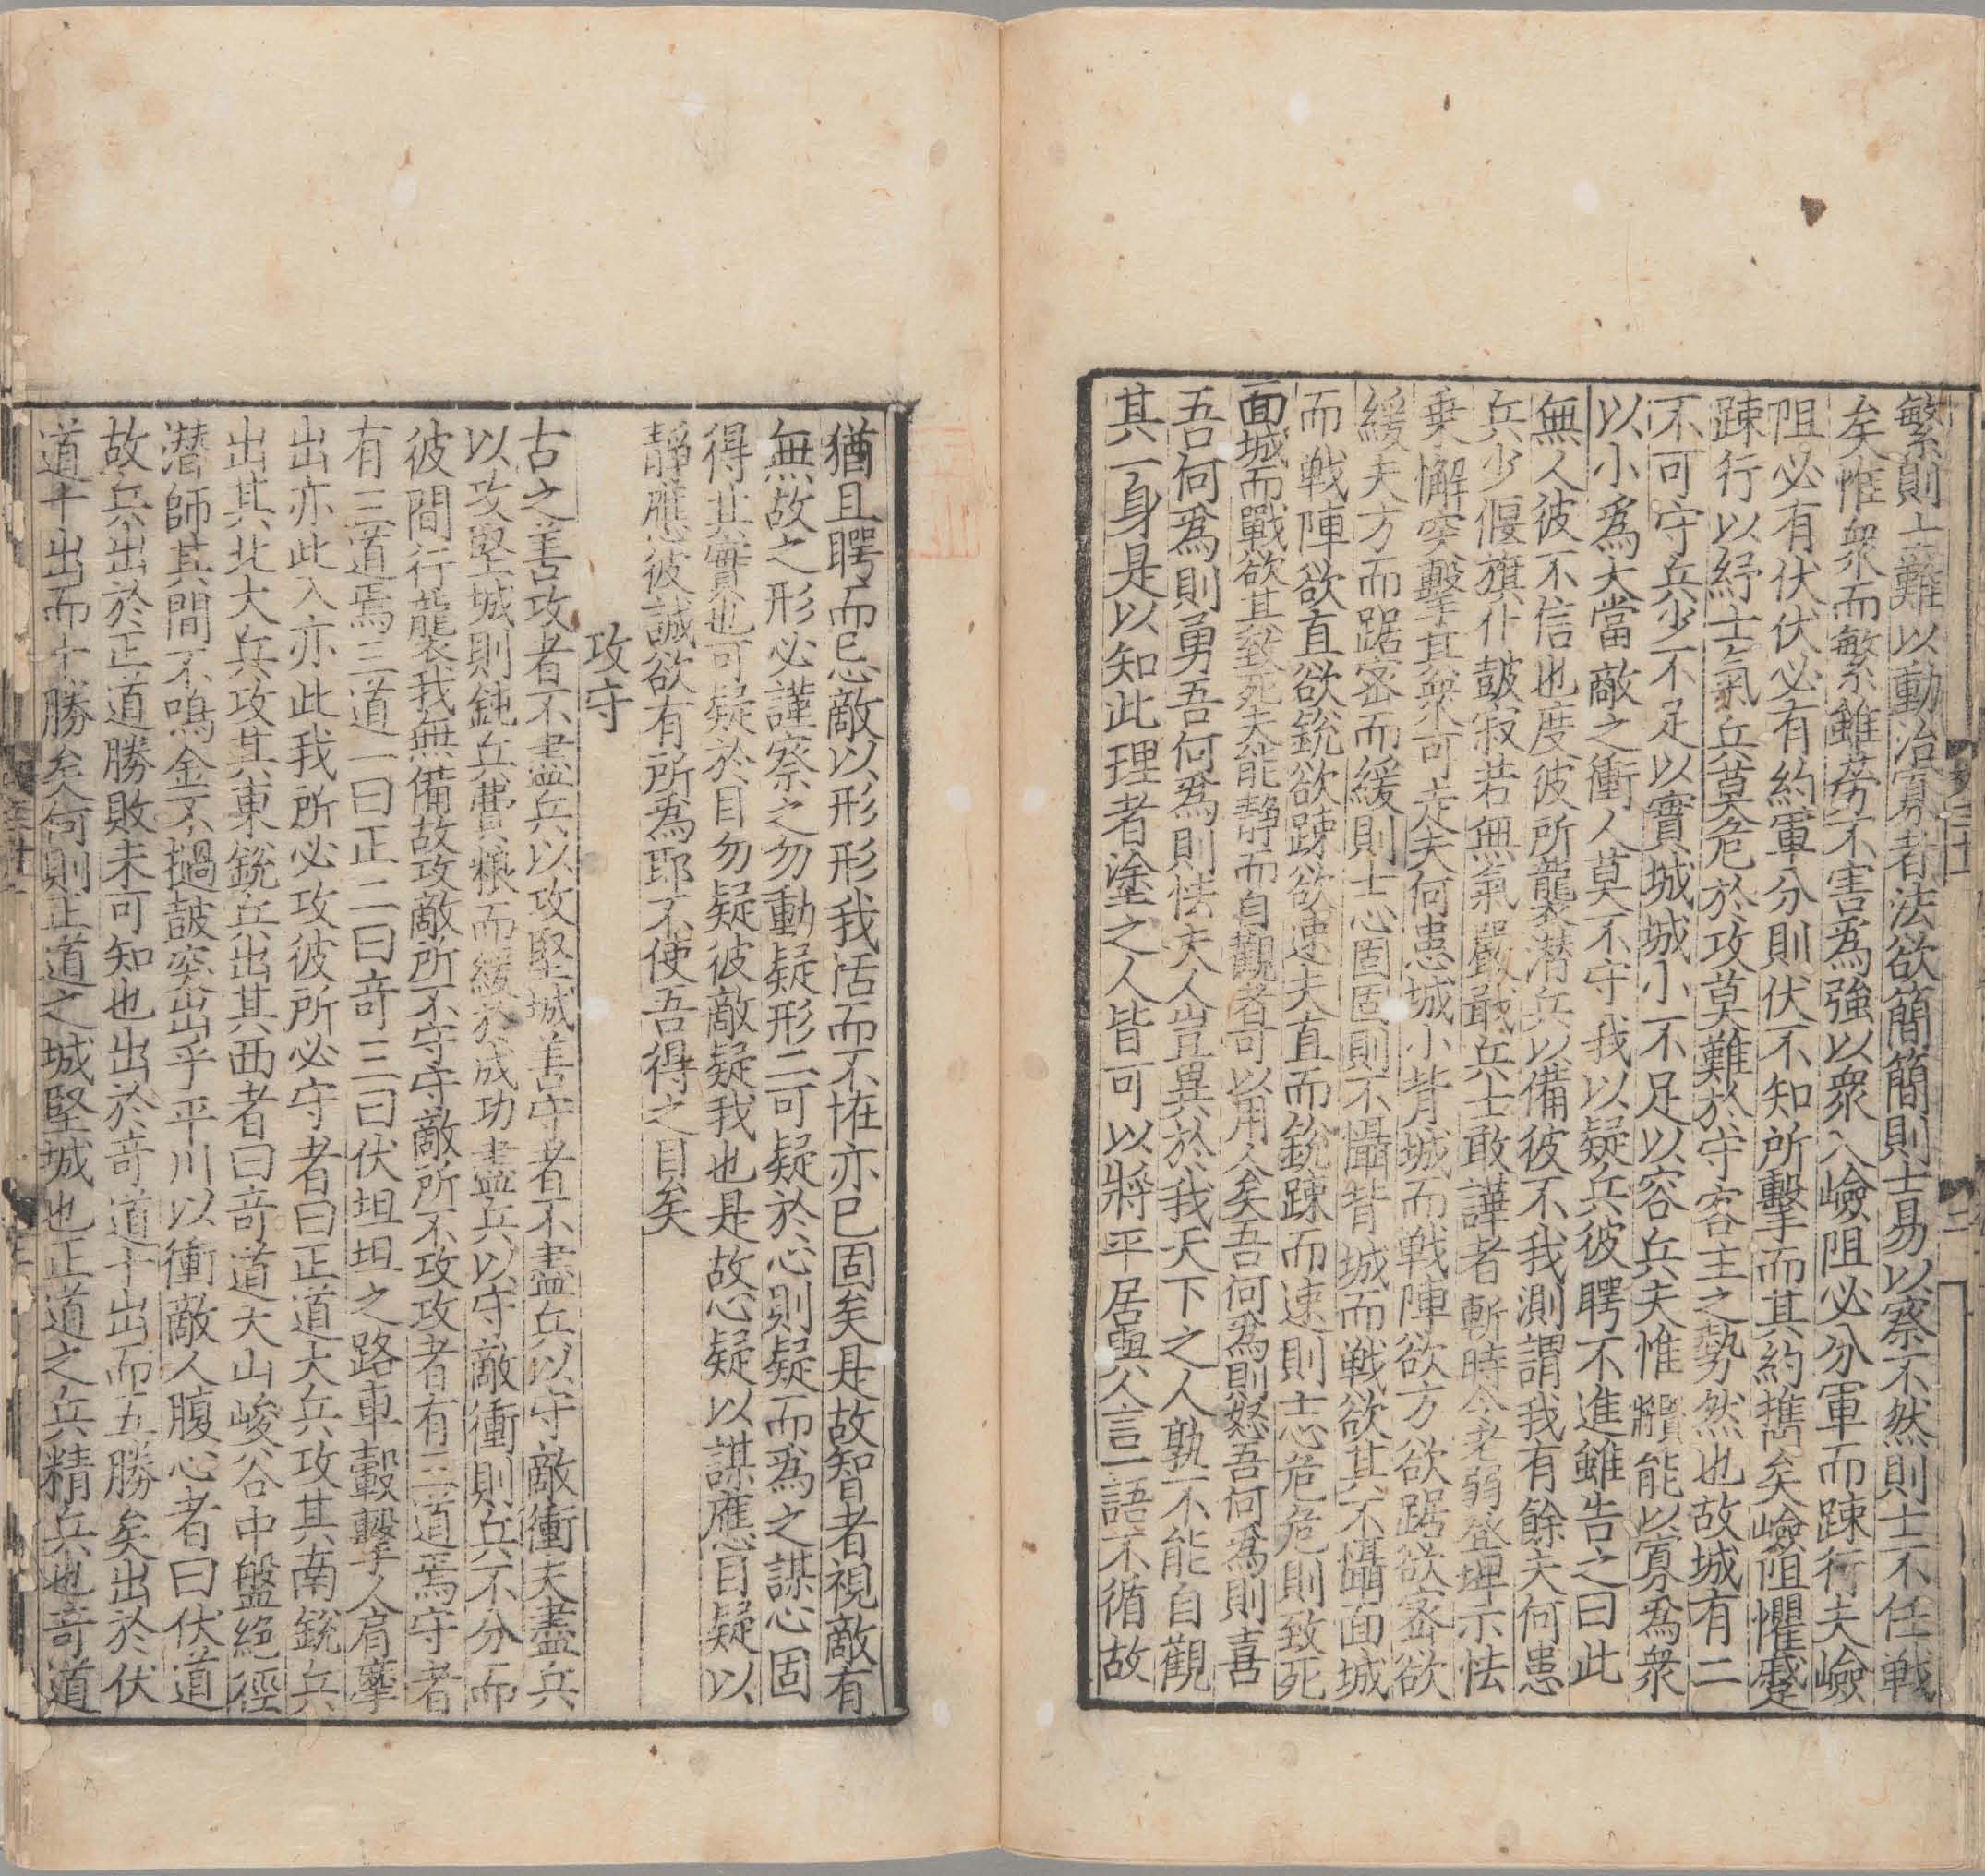 繁則士難以動治寡者法欲簡簡則士易以察不然則士不任戰
矣惟衆而繁雖勞不害為強以衆入嶮阻必分軍而踈行夫嶮
阻必有伏伏必有約軍分則伏不知所擊而其約攜矣嶮阻懼蹙
踈行以紓士氣兵莫危於攻莫難於守客主之勢然也故城有二
不可守兵少不足以實城城小不足以容兵夫惟賢將能以寡為衆
以小爲大當敵之衝人莫不守我以疑兵彼愕不進雖告之曰此
無人彼不信也度彼所襲潜兵以備彼不我測謂我有餘夫何患
兵少偃旗仆皷寂若無氣嚴戢兵士敢譁者斬時令老弱登埤示怯
乗懈突擊其衆可走夫何患城小背城而戦陣欲方欲踞欲宻欲
緩夫方而踞宻而緩則士心固固則不懾背城而戦欲其不懾面城
而戦陣欲直欲銳欲踈欲速夫直而銳踈而速則士心危危則致死
面城而戰欲其致死夫能静而自觀者可以用人矣吾何為則怒吾何為則喜
吾何爲則勇吾何爲則怯夫人豈異於我天下之人孰不能自觀
其一身是以知此理者塗之人皆可以將平居與人言一語不循故
猶且愕而忌敵以形形我活而不恠亦已固矣是故智者視敵有
無故之形必謹察之勿動疑形二可疑於心則疑而爲之謀心固
得其實也可疑於目勿疑彼敵疑我也是故心疑以謀應目疑以
靜應彼誠欲有所為耶不使吾得之目矣
攻守
古之善攻者不盡兵以攻堅城善守者不盡兵以守敵衝夫盡兵
以攻堅城則鈍兵費粮而緩於成功盡兵以守敵衝則兵不分而
彼間行襲我無備故攻敵所不守守敵所不攻攻者有三道焉守者
有三道焉三道一曰正二曰竒三曰伏坦坦之路車轂擊人肩摩
出亦此入亦此我所必攻彼所必守者曰正道大兵攻其南銳兵
出其北大兵攻其東銳兵出其西者曰竒道大山峻谷中盤絕徑
潜師其間不鳴金不撾皷突出乎平川以衝敵人腹心者曰伏道
故兵出於正道勝敗未可知也出於竒道十出而五勝矣出於伏
道十出而十勝矣何則正道之城堅城也正道之兵精兵也竒道